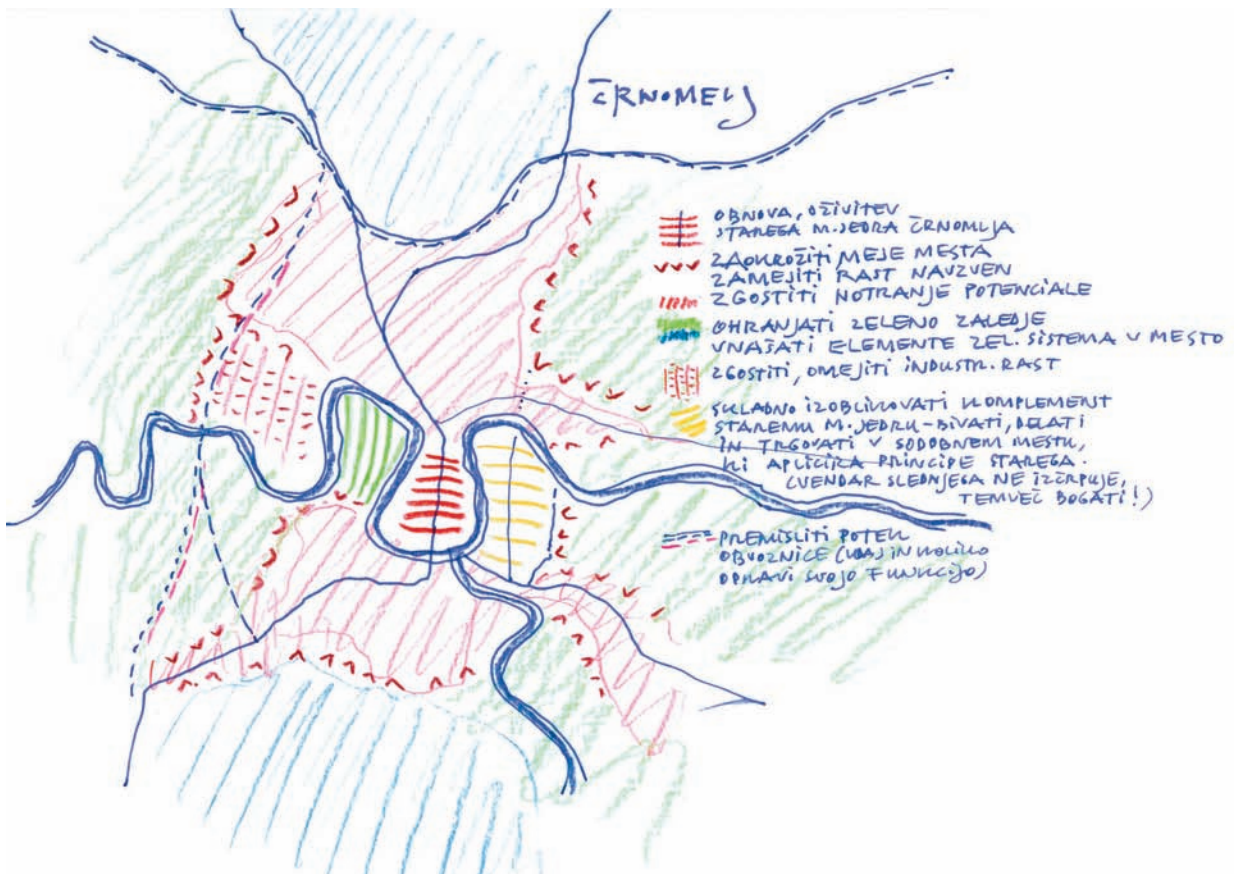 ČRNOMELJ
OBNOVA, OŽIVITEV
STAREGA M. JEDRA ČRNOMLJA
ZAOKROŽITI MEJE MESTA
ZAMEJITI RAST NAVZVEN
ZGOSTITI NOTRANJE POTENCIALE
OHRANJATI ZELENO ZALEDJE
VNAŠATI ELEMENTE ZEL. SISTEMA V MESTO
ZGOSTITI, OMEJITI INDUSTR. RAST
SKLADNO IZOBLIKOVATI KOMPLEMENT
STAREMU M. JEDRU - BIVATI, DELATI
IN TRGOVATI V SODOBNEM MESTU,
KI APLICIRA PRINCIPE STAREGA.
(VENDAR SLEDNJEGA NE IZČRPUJE,
TEMVEČ BOGATI!)
PREMISLITI POTEK
OBVOZNICE (KDAJ IN KOLIKO
OPRAVI SVOJO FUNKCIJO)